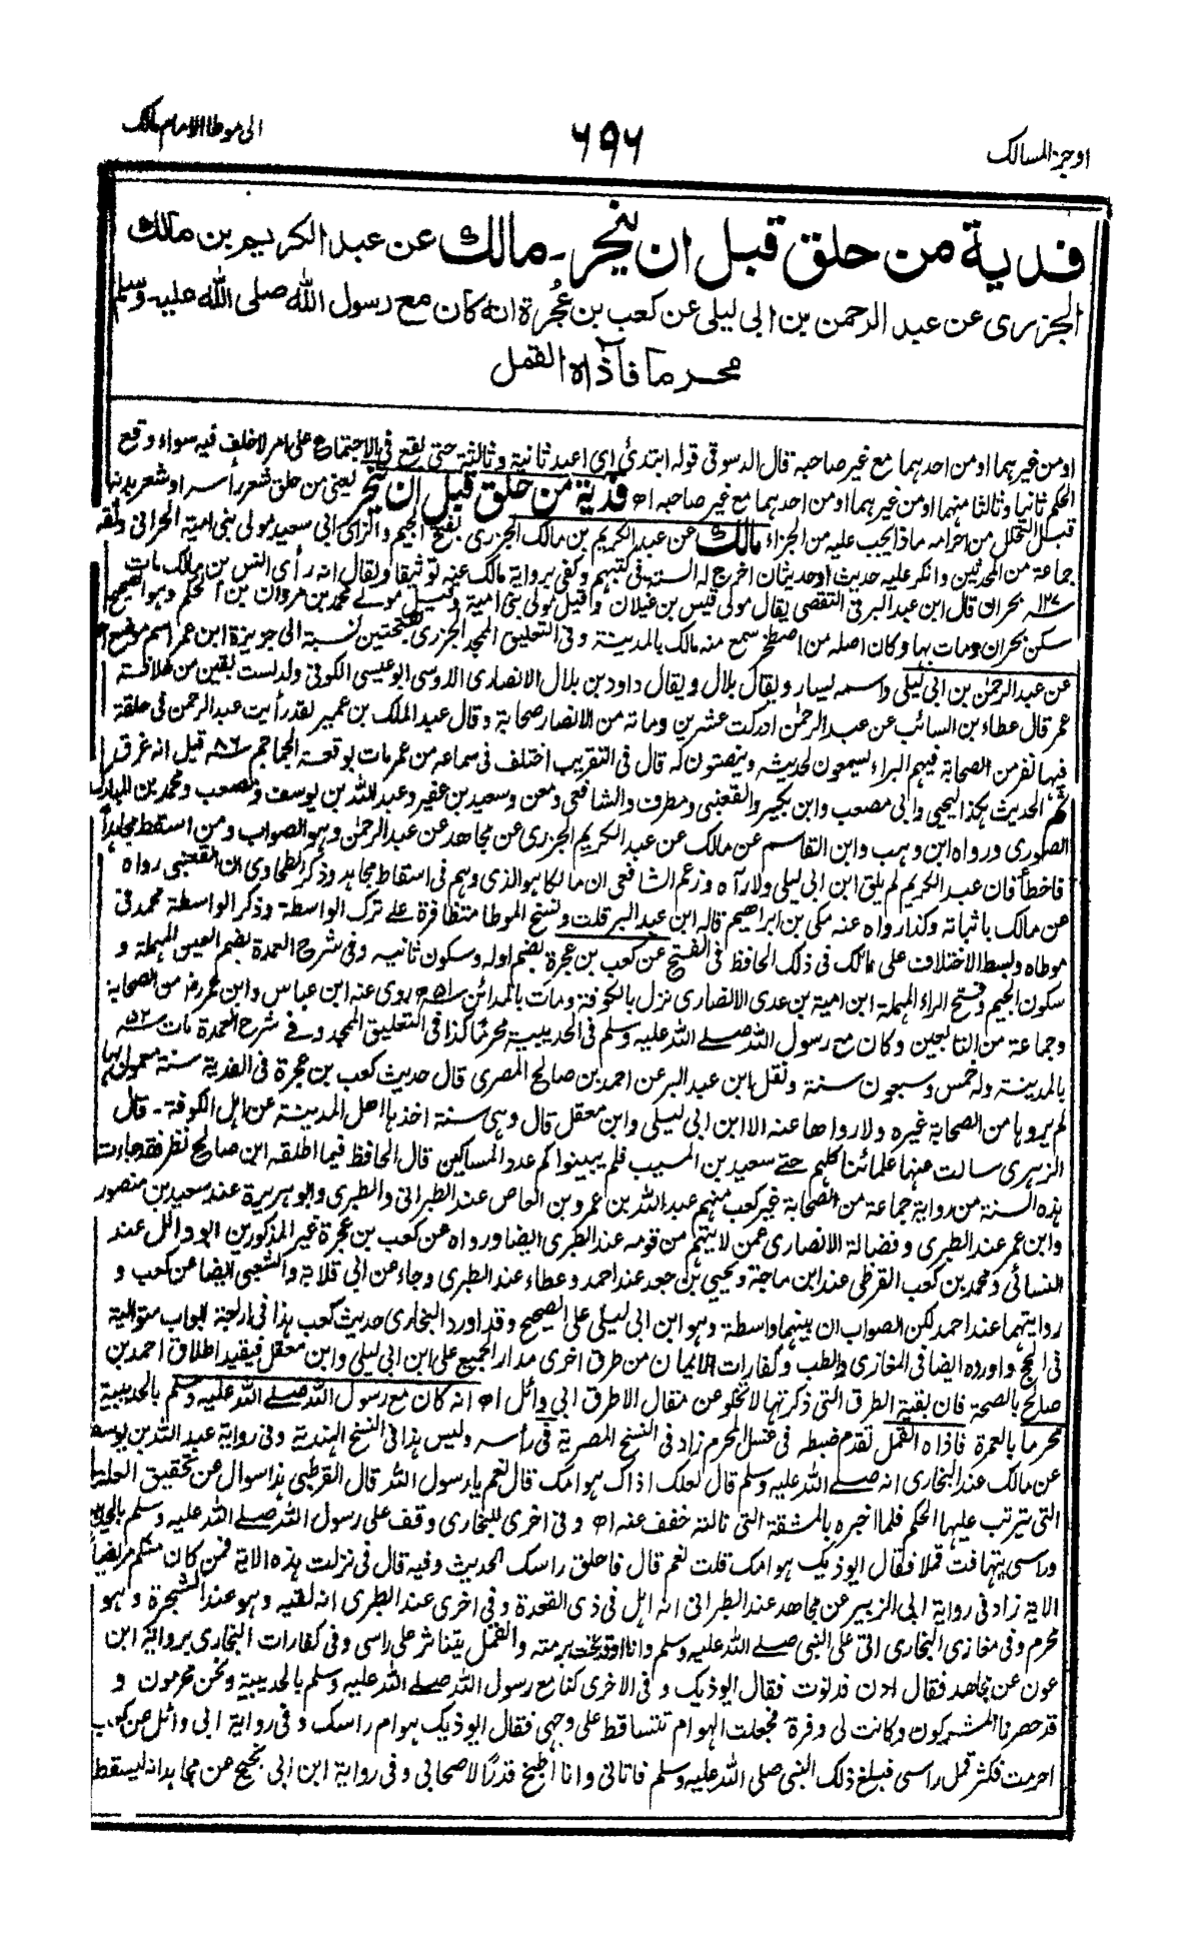 اوجز المسالك
٦٩٦
الی موطا الامام مالك
فدية من حلق قبل ان ينحر۔ مالك عن عبد الكريم بن مالك
الجزري عن عبد الرحمن بن ابی لیلی عن كعب بن عُجرة انه كان مع رسول الله صلی الله علیه وسلم
محرما فآذاه القمل
او من غيرهما او من احدهما مع غير صاحبه قال الدسوقی قوله ابتدئ ای اعيد ثانية وثالثة حتی يقع فی الاجتماع علی امر لا خلف فيه سواء وقع
الحكم ثانيا وثالثا منهما او من غيرهما او من احدهما مع غير صاحبه اھ فدية من حلق قبل ان ينحر يعنی من حلق شعر رأسه او شعر بدنه
قبل التحلل من احرامه ماذا يجب عليه من الجزاء مالك عن عبد الكريم بن مالك الجزری بفتح الجيم والزای ابی سعيد مولی بنی امية الحرانی وثقه
جماعة من المحدثين وانكر عليه حديث او حديثان اخرج له الستة فی كتبهم وكفی برواية مالك عنه توثيقا ويقال انه رأی انس بن مالك مات
سنة ۱۲۷ بحران قال ابن عبد البر فی التقصی يقال مولی قيس بن غيلان وقيل مولی بنی امية وقيل مولے محمد بن مروان بن الحكم وهو الصحيح
سكن بحران ومات بها وكان اصله من اصطخر سمع منه مالك بالمدينة وفی التعليق الممجد الجزری بفتحتين نسبة الی جزيرة ابن عمر اسم موضع اھ
عن عبد الرحمن بن ابی ليلی واسمه يسار ويقال بلال ويقال داود بن بلال الانصاری الاوسی ابو عيسی الكوفی ولد لست بقين من خلافة
عمر قال عطاء بن السائب عن عبد الرحمن ادركت عشرين ومائة من الانصار صحابة وقال عبد الملك بن عمير لقد رأيت عبد الرحمن فی حلقة
فيها نفر من الصحابة فيهم البراء يسمعون لحديثه وينصتون له قال فی التقريب اختلف فی سماعه من عمر مات بوقعة الجماجم سنة ۸۶ قيل انه غرق
الحديث هكذا ليحيی وابی مصعب وابن بكير والقعنبی ومطرف والشافعی ومعن وسعيد بن عفير وعبد الله بن يوسف ومصعب ومحمد بن المبارك
الصوری ورواه ابن وهب وابن القاسم عن مالك عن عبد الكريم الجزری عن مجاهد عن عبد الرحمن وهو الصواب ومن اسقط مجاهدا
فاخطأ فان عبد الكريم لم يلق ابن ابی ليلی ولا رآه وزعم الشافعی ان مالكا هو الذی وهم فی اسقاط مجاهد وذكر الطحاوی ان القعنبی رواه
عن مالك باثباته وكذا رواه عنه مكی بن ابراهيم قاله ابن عبد البر قلت ونسخ الموطا متظافرة علے ترك الواسطة وذكر الواسطة محمد فی
موطاه وبسط الاختلاف علی مالك فی ذلك الحافظ فی الفتح عن كعب بن عجرة بضم اوله وسكون ثانيه وفی شرح العمدة بضم العين المهملة و
سكون الجيم وفتح الراء المهملة ابن امية بن عدی الانصاری نزل بالكوفة ومات بالمدائن سنة ۵۱ روی عنه ابن عباس وابن عمر وغيرهم من الصحابة
وجماعة من التابعين وكان مع رسول الله صلے الله عليه وسلم فی الحديبية محرما كذا فی التعليق الممجد وفے شرح العمدة مات سنة ۵۲
بالمدينة وله خمس وسبعون سنة ونقل ابن عبد البر عن احمد بن صالح المصری قال حديث كعب بن عجرة فی الفدية سنة معمول بها
لم يروها من الصحابة غيره ولا رواها عنه الا ابن ابی ليلی وابن معقل قال وهی سنة اخذها اهل المدينة عن اهل الكوفة۔ قال
الزهری سالت عنها علمائنا كلهم حتے سعيد بن المسيب فلم يبينوا كم عدد المساكين قال الحافظ فيما اطلقه ابن صالح نظر فقد جاءت
هذه السنة من رواية جماعة من الصحابة غير كعب منهم عبد الله بن عمرو بن العاص عند الطبرانی والطبری وابو هريرة عند سعيد بن منصور
وابن عمر عند الطبری وفضالة الانصاری عمن لا يتهم من قومه عند الطبری ايضا ورواه عن كعب بن عجرة غير المذكورين ابو وائل عند
النسائی ومحمد بن كعب القرظی عند ابن ماجة ويحيی بن جعد عند احمد وعطاء عند الطبری وجاء عن ابی قلابة والشعبی ايضا عن كعب و
روايتهما عند احمد لكن الصواب ان بينهما واسطة وهو ابن ابی ليلی علی الصحيح وقد اورد البخاری حديث كعب هذا فی اربعة ابواب متوالية
فی الحج واورده ايضا فی المغازی والطب وكفارات الايمان من طرق اخری مدار الجميع علی ابن ابی ليلی وابن معقل فيقيد اطلاق احمد بن
صالح بالصحة فان بقية الطرق التی ذكرتها لا تخلو عن مقال الا طرق ابی وائل اھ انه كان مع رسول الله صلے الله عليه وسلم بالحديبية
محرما بالعمرة فاذاه القمل تقدم ضبطه فی غسل المحرم زاد فی النسخ المصرية فی رأسه وليس هذا فی النسخ الهندية وفی رواية عبد الله بن يوسف
عن مالك عند البخاری انه صلے الله عليه وسلم قال لعلك اذاك هوامك قال نعم يا رسول الله قال القرطبی هذا سوال عن تحقيق العلة
التی يترتب عليها الحكم فلما اخبره بالمشقة التی نالته خفف عنه اھ وفی اخری للبخاری وقف علی رسول الله صلے الله عليه وسلم بالحديبية
وراسی يتهافت قملا فقال ايوذيك هوامك قلت نعم قال فاحلق راسك الحديث وفيه قال فی نزلت هذه الاية فمن كان منكم مريضا
الاية زاد فی رواية ابی الزبير عن مجاهد عند الطبرانی انه اهل فی ذی القعدة وفی اخری عند الطبری انه لقيه وهو عند الشجرة وهو
محرم وفی مغازی البخاری اتی علی النبی صلے الله عليه وسلم وانا اوقد تحت برمة والقمل يتناثر علی راسی وفی كفارات البخاری برواية ابن
عون عن مجاهد فقال ادن فدنوت فقال ايوذيك وفی الاخری كنا مع رسول الله صلے الله عليه وسلم بالحديبية ونحن محرمون و
قد حصرنا المشركون وكانت لی وفرة فجعلت الهوام تتساقط علی وجهی فقال ايوذيك هوام راسك وفی رواية ابی وائل عن كعب
احرمت فكثر قمل راسی فبلغ ذلك النبی صلی الله عليه وسلم فاتانی وانا اطبخ قدرا لاصحابی وفی رواية ابن ابی نجيح عن مجاهد انه يسقط